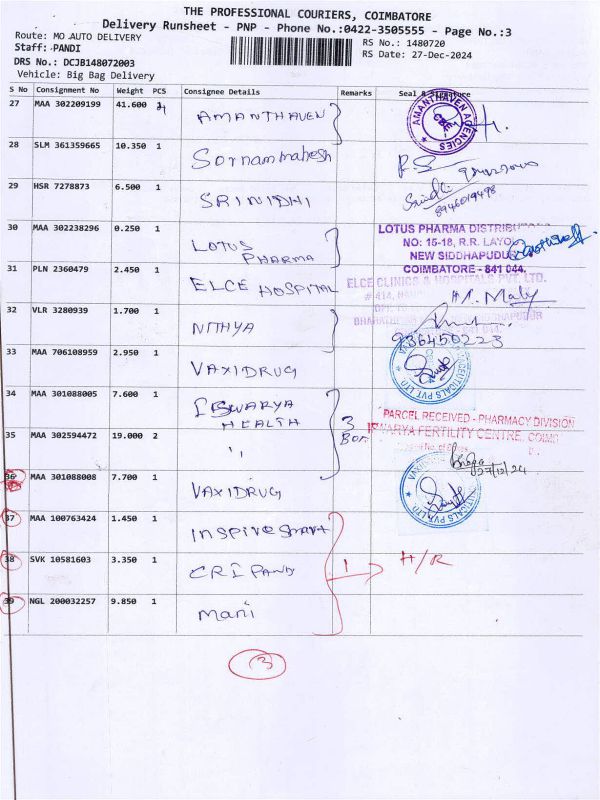 THE PROFESSIONAL COURIERS, COIMBATORE
Delivery Runsheet - PNP - Phone No.:0422-3505555 - Page No.:3
Route: MO AUTO DELIVERY
RS No.: 1480720
Staff: PANDI
RS Date: 27-Dec-2024
DRS No.: DCJB148072003
Vehicle: Big Bag Delivery
S No Consignment No Weight PCS Consignee Details Remarks Seal & Signature
27 MAA 302209199 41.600 AMANTHAVEN
AMANTHAVEN AGENCIES
28 SLM 361359665 10.350 1 Sornammahesh
29 HSR 7278873 6.500 1 SRINIDHI
8946019498
30 MAA 302238296 0.250 1 LOTUS PHARMA
LOTUS PHARMA
NO: 15-18, R.R.
NEW SIDDHAPUDUR
COIMBATORE - 641 044.
31 PLN 2360479 2.450 1 ELCE HOSPITAL
ELCE CLINICS & HOSPITALS PVT. LTD.
32 VLR 3280939 1.700 1 NITHYA
33 MAA 706108959 2.950 1 VAXIDRUG
34 MAA 301088005 7.600 1 ISWARYA HEALTH
3 Box
PARCEL RECEIVED - PHARMACY DIVISION
FERTILITY CENTRE,
35 MAA 302594472 19.000 2 "
27/12/24
36 MAA 301088008 7.700 1 VAXIDRUG
37 MAA 100763424 1.450 1 INSPIRE Smart
38 SVK 10581603 3.350 1 CRI PAND
1 H/R
39 NGL 200032257 9.850 1 mani
3